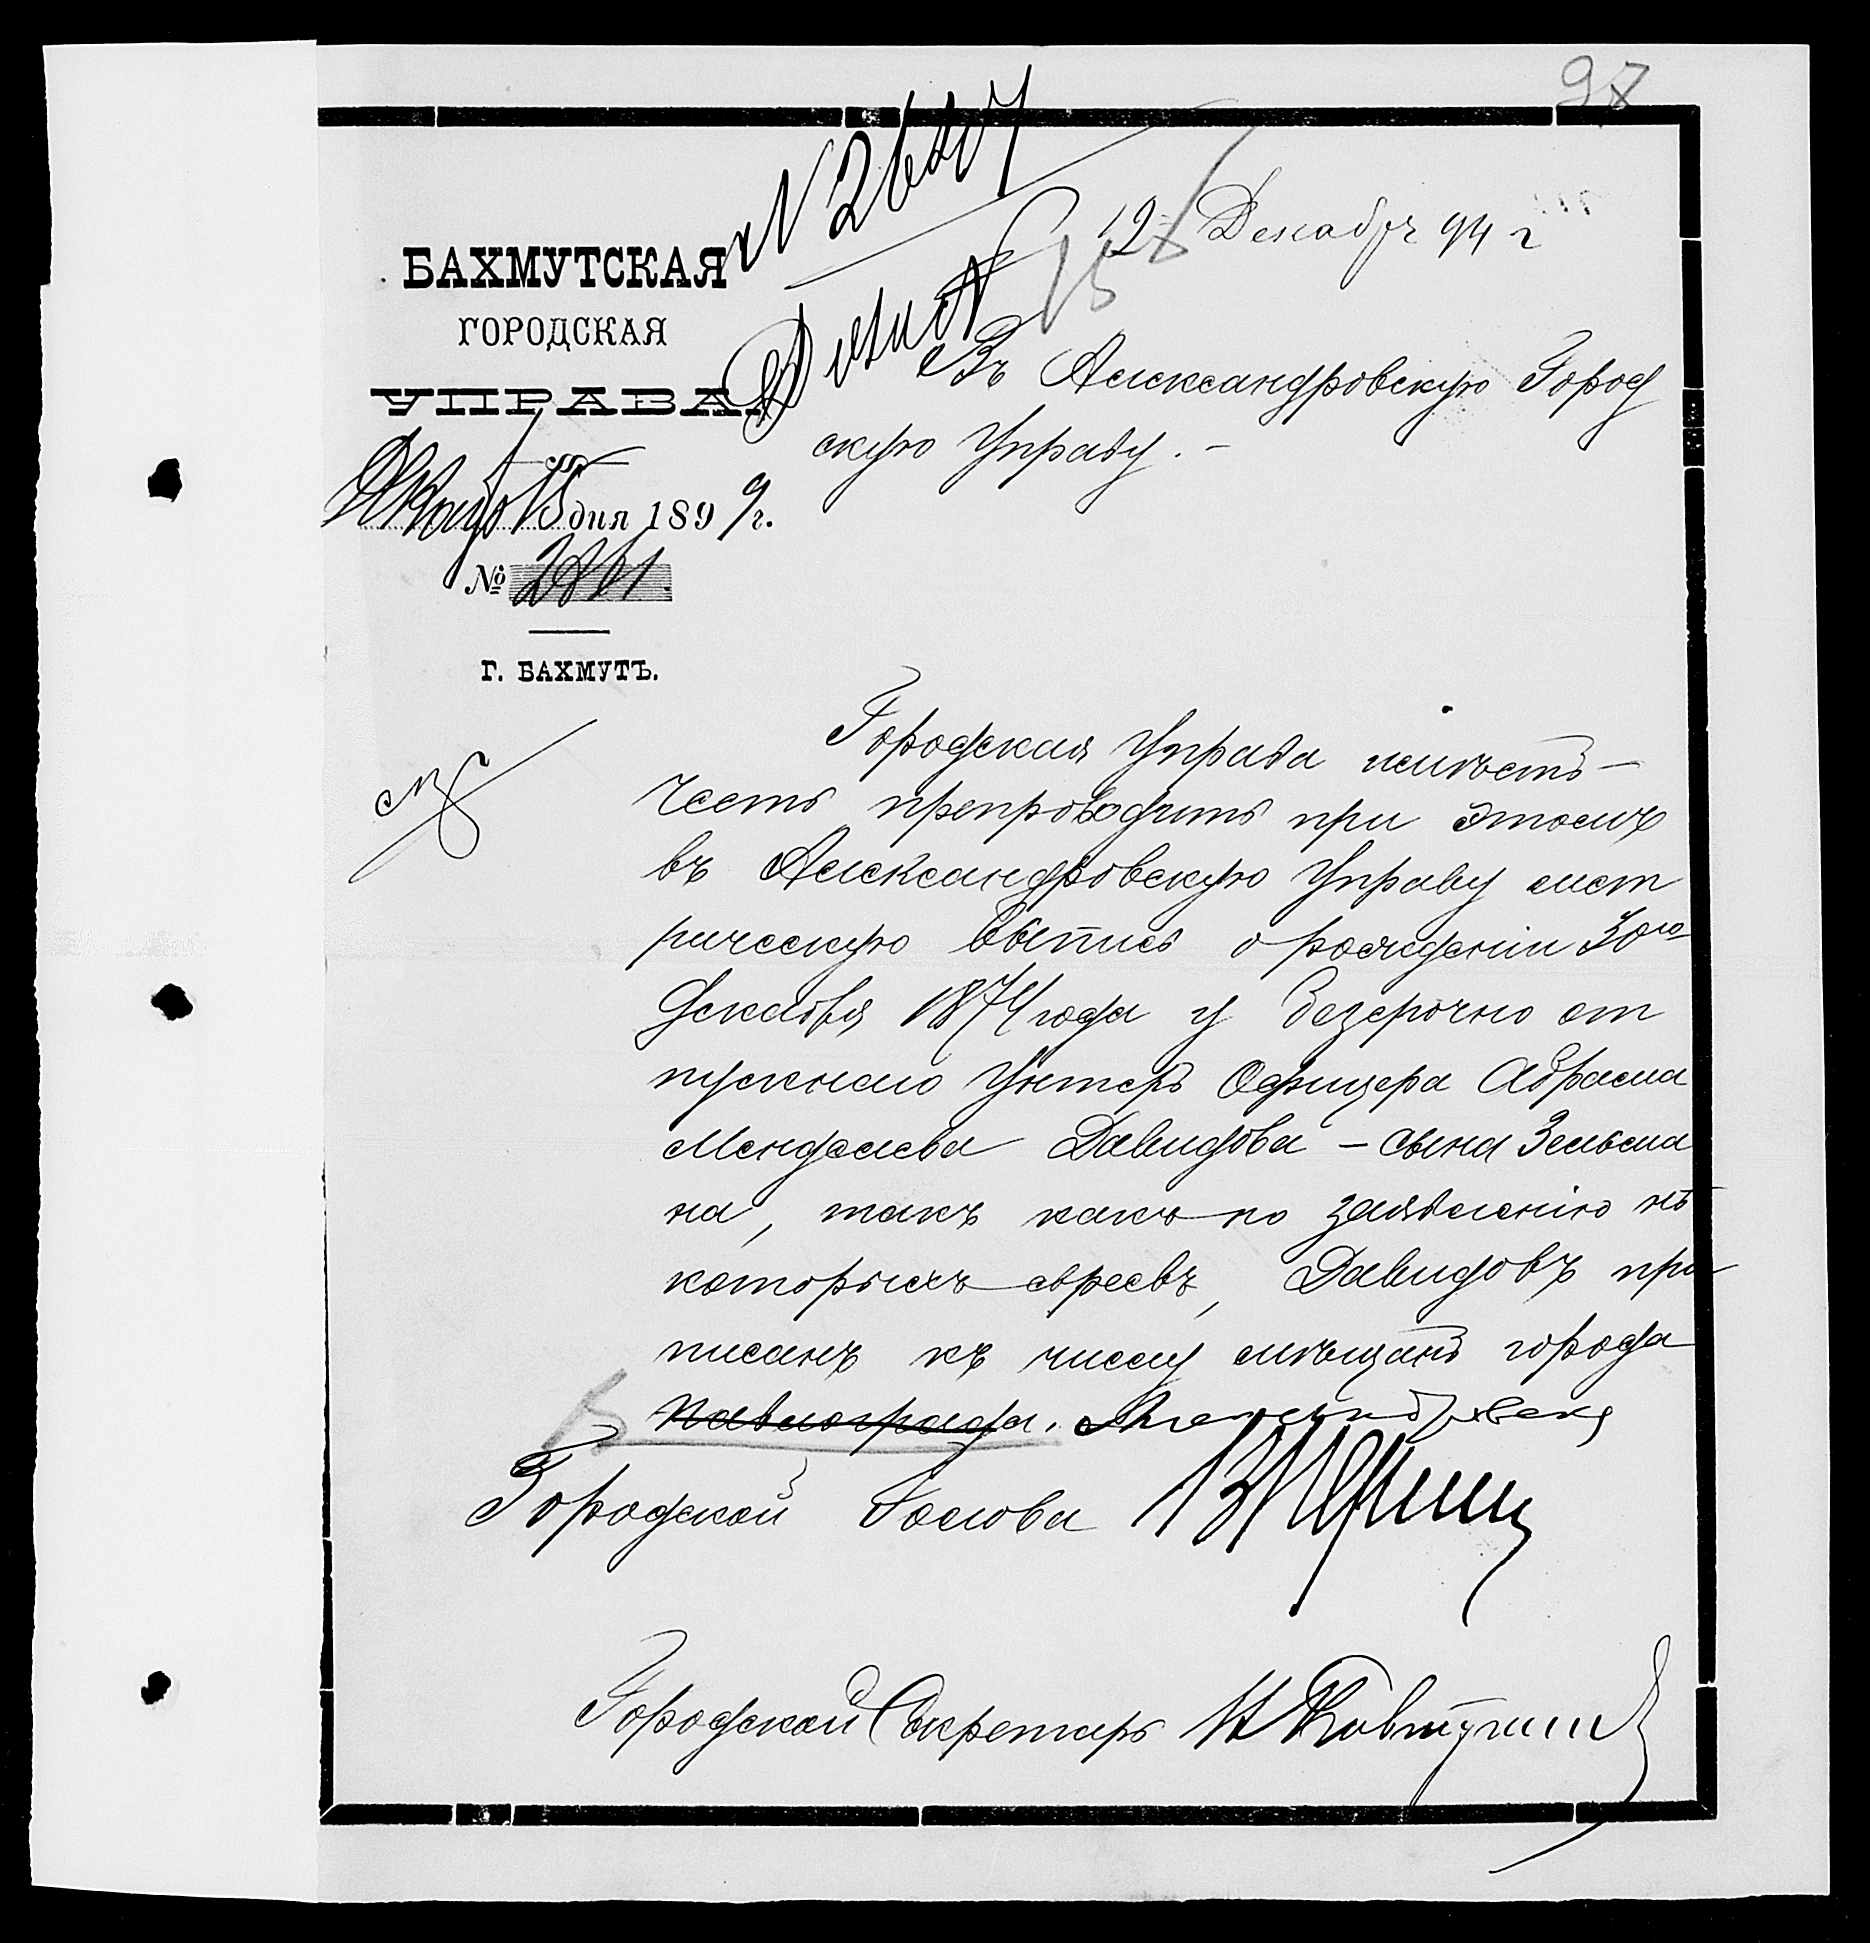 98
№ 26207
12 Декабря 94 г
БАХМУТСКАЯ
ГОРОДСКАЯ
УПРАВА.
15 дня 1899г.
№ 2861.
Г. БАХМУТЪ.
Въ Александровскую Город
скую Управу. -
Городская Управа имѣетъ-
честь препроводить при этомъ
въ Александровскую Управу мет
рическую выпись о рожденіи 30го
декабря 1874 года у безсрочно от
пускнаго Унтеръ Офицера Абрама
Менделева Давидова - сына Зельма
на, такъ какъ по заявленію нѣ
которыхъ евреевъ, Давидовъ при
писанъ къ числу мѣщанъ города
Павлограда. Александровска
Городской Голова
Городской Секретарь